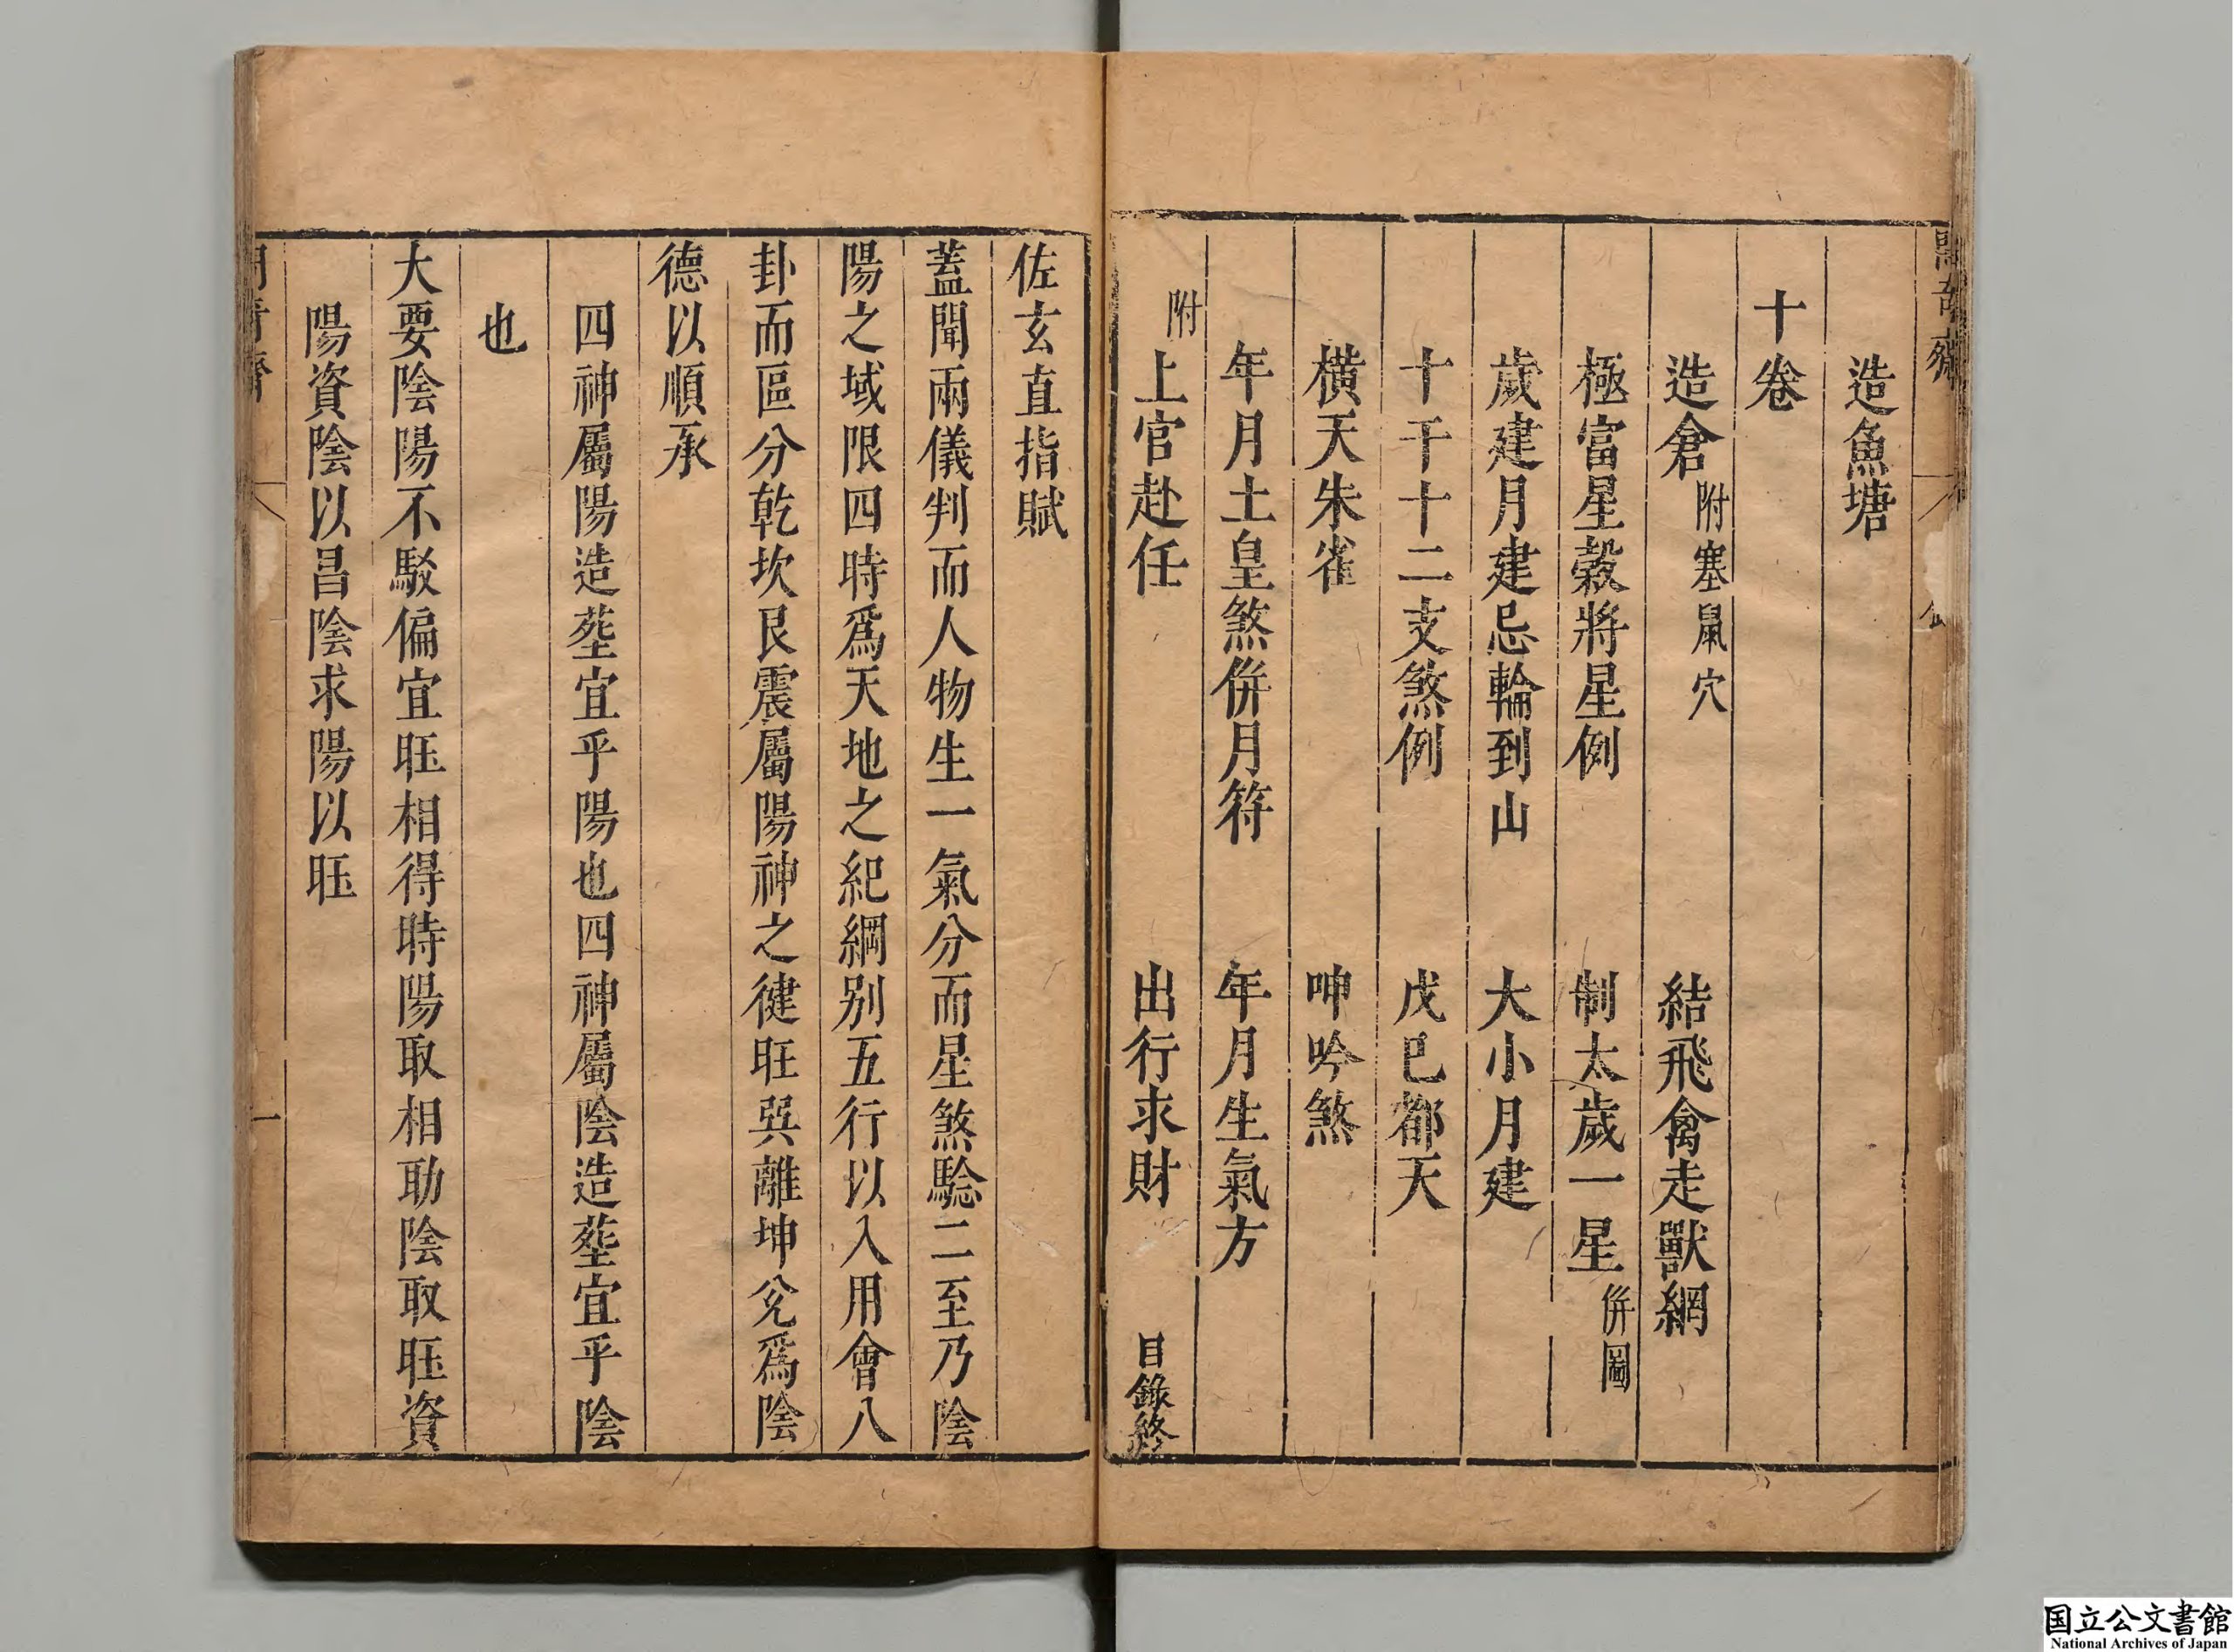 造魚塘
十卷
造倉附塞鼠穴　結飛禽走獸網
極富星穀將星例　制太歲一星併圖
歲建月建忌輪到山　大小月建
十干十二支煞例　戊巳都天
橫天朱雀　呻吟煞
年月土皇煞併月符　年月生氣方
附上官赴任　出行求財　目錄終
佐玄直指賦
蓋聞兩儀判而人物生一氣分而星煞驗二至乃陰
陽之域限四時爲天地之紀綱别五行以入用會八
卦而區分乾坎艮震屬陽神之徤旺巽離坤兊爲陰
德以順承
四神屬陽造塟宜乎陽也四神屬陰造塟宜乎陰
也
大要陰陽不駁偏宜旺相得時陽取相助陰取旺資
陽資陰以昌陰求陽以旺
一
国立公文書館
National Archives of Japan